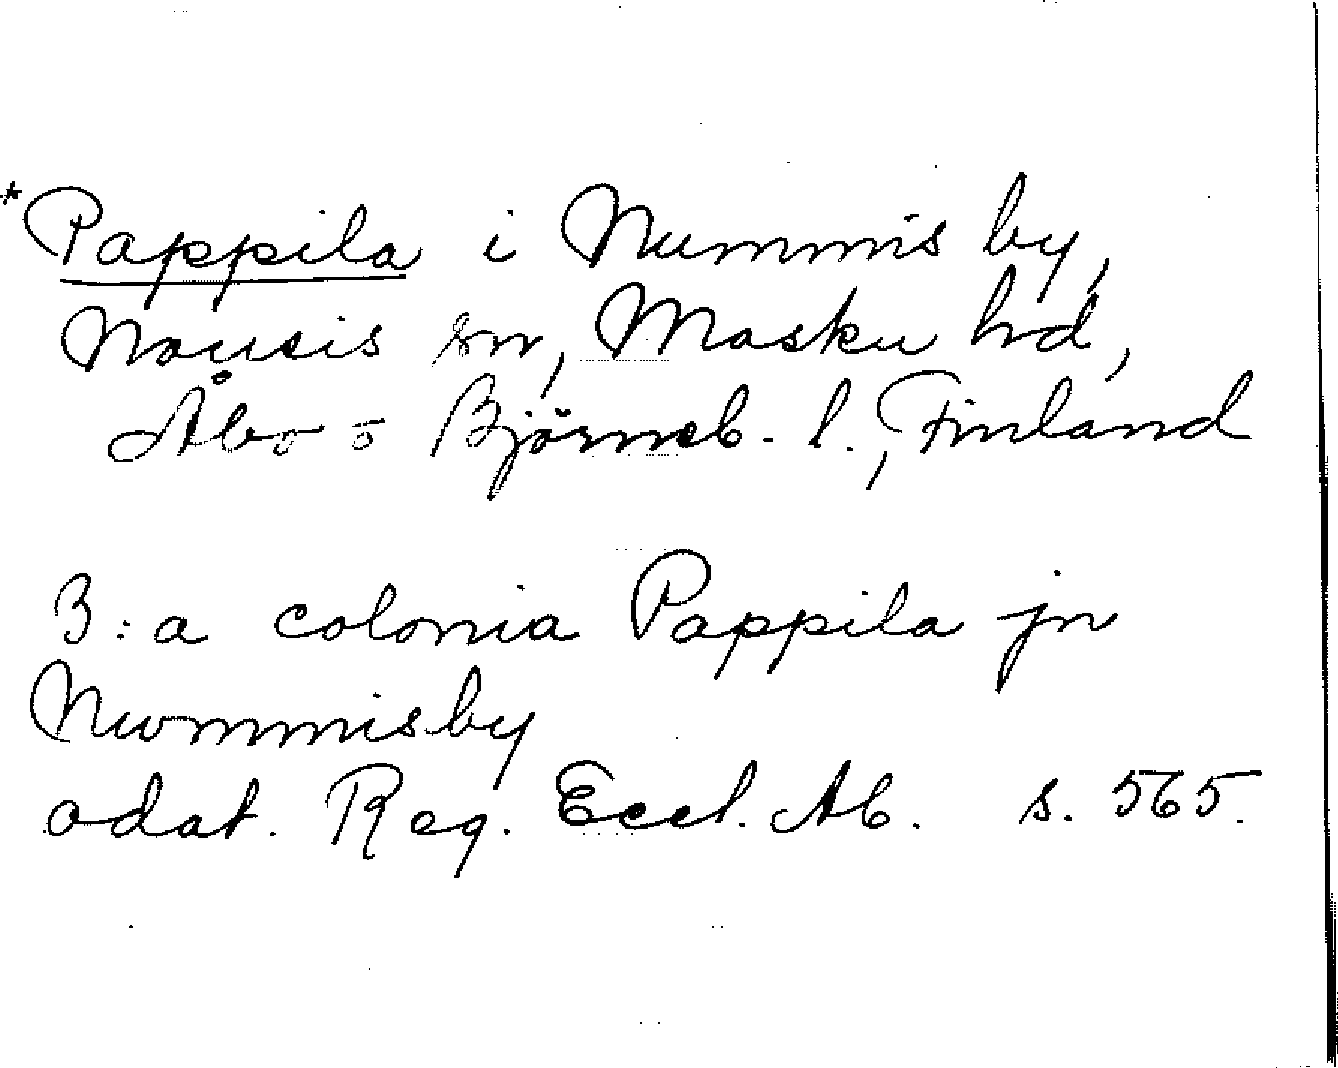 *Pappila i Nummis by,
Nousis sn, Masku hd,
Åbo o Björneb. l., Finland
3:a colonia Pappila jn
Nwmmisby
odat. Reg. Eccl. Ab. s. 565.